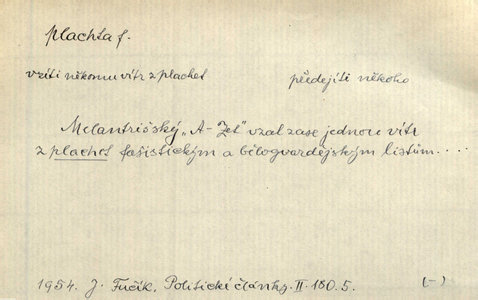 plachta f.
vzíti někomu vítr z plachet předejíti někoho
Melantrišský „A-Zet" vzal zase jednou vítr
z plachet fašistickým a bělogvardějským listům....
1954. J. Fučík, Politické články. II. 180.5. (-)